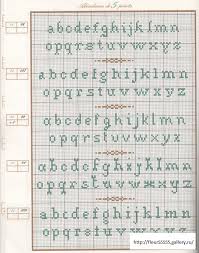 abcdefghijklmn
opqrstuvwxyz
abcdefghijklmn
opqrstuvwxyz
abcdefghijklmn
opqrstuvwxyz
abcdefghijklmn
opqrstuvwxyz
abcdefghijklmn
opqrstuvwxyz
http://fleur55555.gallery.ru/